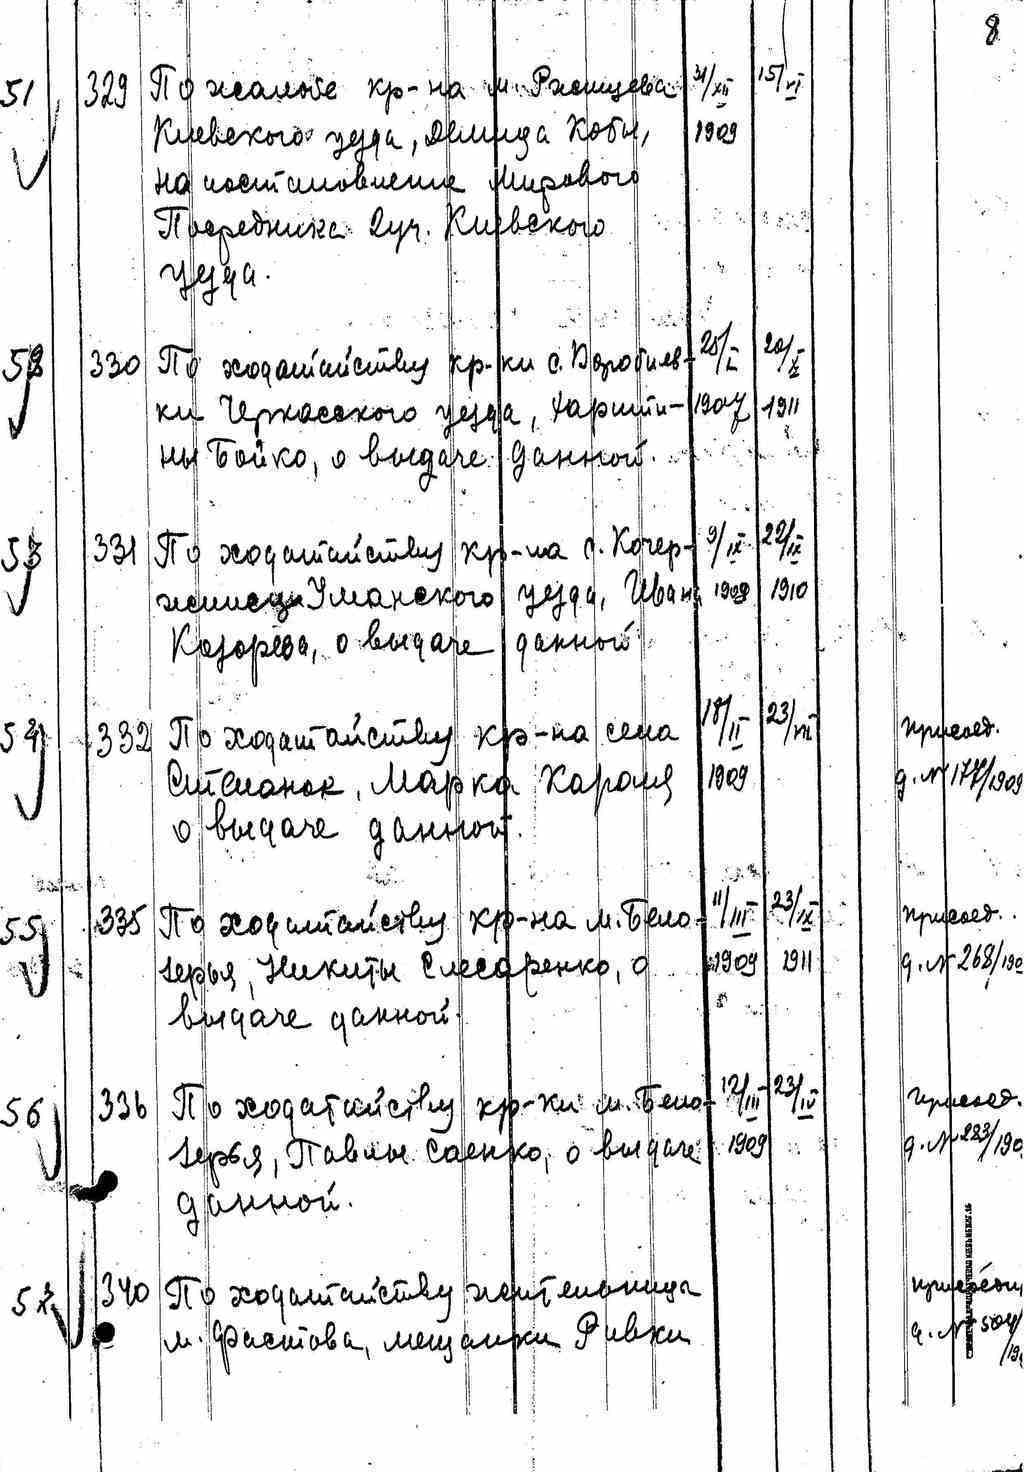 8
51 329 По жалобе кр-на м. Ржищева 31/XII 15/VI
Киевского уезда, Демида Кобы, 1909
на постановление Мирового
Посредника 2 уч. Киевского
уезда.
52 330 По ходатайству кр-ки с. Воробиев- 25/I 20/X
ки Черкасского уезда, Харити- 1907 1911
ны Бойко, о выдаче данной.
53 331 По ходатайству кр-на с. Кочер- 9/IX 22/IX
жинец Уманского уезда, Ивана 1909 1910
Козорева, о выдаче данной
54 332 По ходатайству кр-на села 18/II 23/VII присоед.
Степанок, Марка Кароля 1909 д. № 177/1909
о выдаче данной.
55 335 По ходатайству кр-на м. Бело- 11/III 23/IX присоед.
зерья, Никиты Слесаренко, о 1909 1911 д. № 268/190
выдаче данной.
56 336 По ходатайству кр-ки м. Бело- 12/III 23/IV присоед.
зерья, Павлы Саенко, о выдаче 1909 д. № 283/190
данной.
57 340 По ходатайству жительницы
м. Фастова, мещанки Ривки д. № 504/19